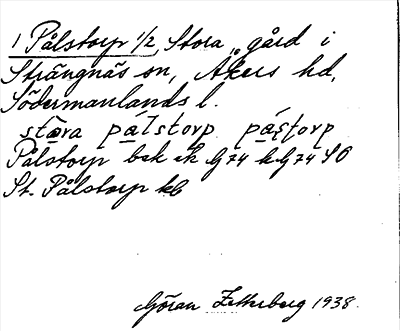 1 Pålstorp 1/2, Stora, gård i
Strängnäs sn, Åkers hd,
Södermanlands l.
stɷra pálstorp páʂtorp
Pålstorp bek ek G 74 k. G 74 SO
St. Pålstorp kb
Göran Zetterberg 1938.